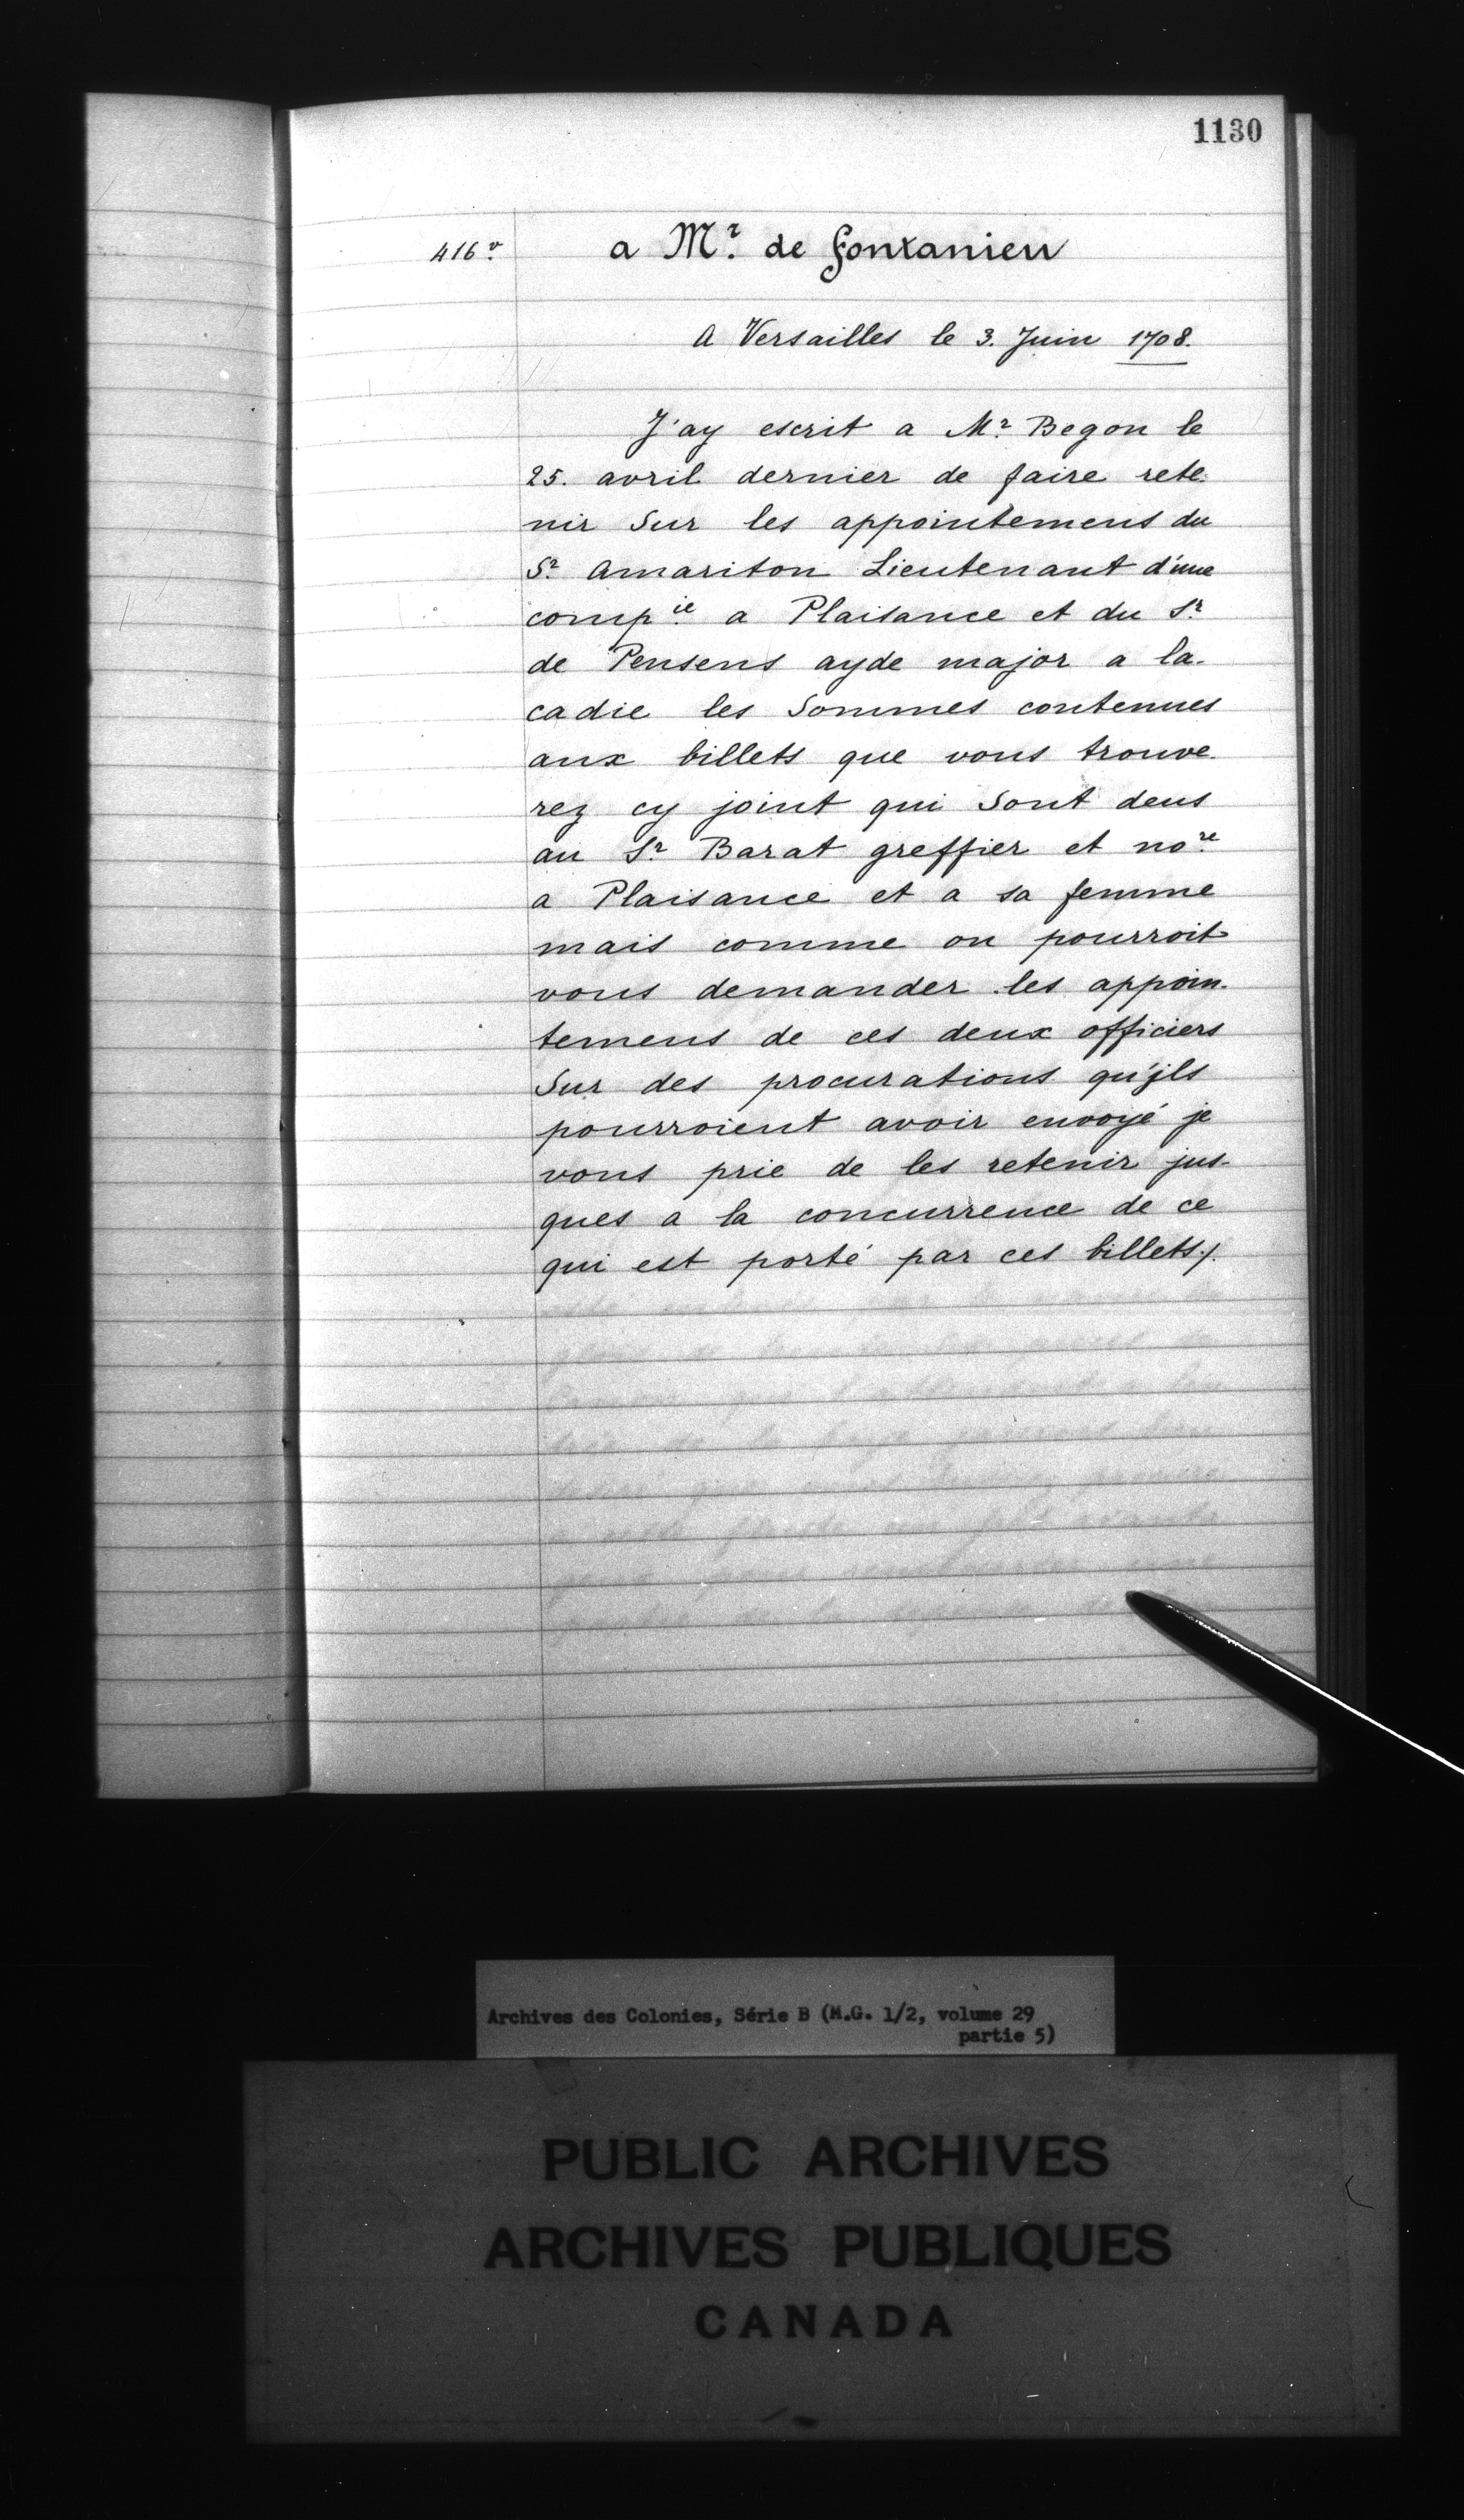 1130
416v. a Mr. de fontanieu
A Versailles le 3. Juin 1708.
J'ay escrit a Mr. Begon le
25. avril dernier de faire rete-
nir Sur les appointemens du
Sr. Amariton Lieutenant d'une
compie. a Plaisance et du Sr.
de Pensens ayde major a la-
cadie les Sommes contenues
aux billets que vous trouve-
rez cy joint qui Sont deus
au Sr. Barat greffier et nore.
a Plaisance et a sa femme
mais comme on pourroit
vous demander les appoin-
temens de ces deux officiers
Sur des procurations qu'jls
pourroient avoir envoyé je
vous prie de les retenir jus-
ques a la concurrence de ce
qui est porté par ces billets./.
Archives des Colonies, Série B (M.G. 1/2, volume 29
partie 5)
PUBLIC ARCHIVES
ARCHIVES PUBLIQUES
CANADA